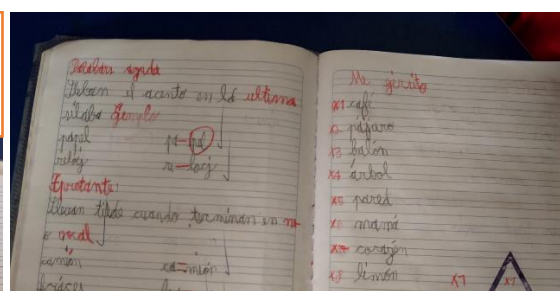 Palabra aguda
Lleban el acento en la ultima
silaba Gemplo
papel pa-pel
reloj re-loj
Iportante:
llevan tilde cuando terminan en n s
o vocal
camión ca-mión
Me gercito
x1 café
x2 pájaro
x3 balón
x4 árbol
x5 pared
x6 mamá
x7 corazón
x8 limón x7 x1